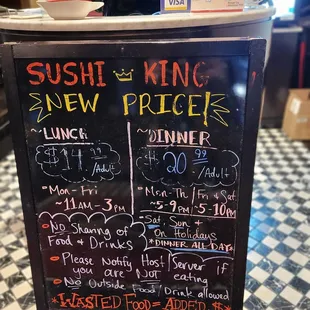 VISA
SUSHI KING
NEW PRICE!
~LUNCH
$14.99/Adult
• Mon - Fri
~ 11AM - 3PM
~DINNER
$20.99/Adult
• Mon - Th / Fri & Sat
~5-9PM / ~5-10PM
• Sat, Sun &
On Holidays
*DINNER ALL DAY*
• NO Sharing of
Food & Drinks
• Please Notify Host/Server if
you are NOT eating
• No Outside Food/Drink allowed
*WASTED FOOD = ADDED $*